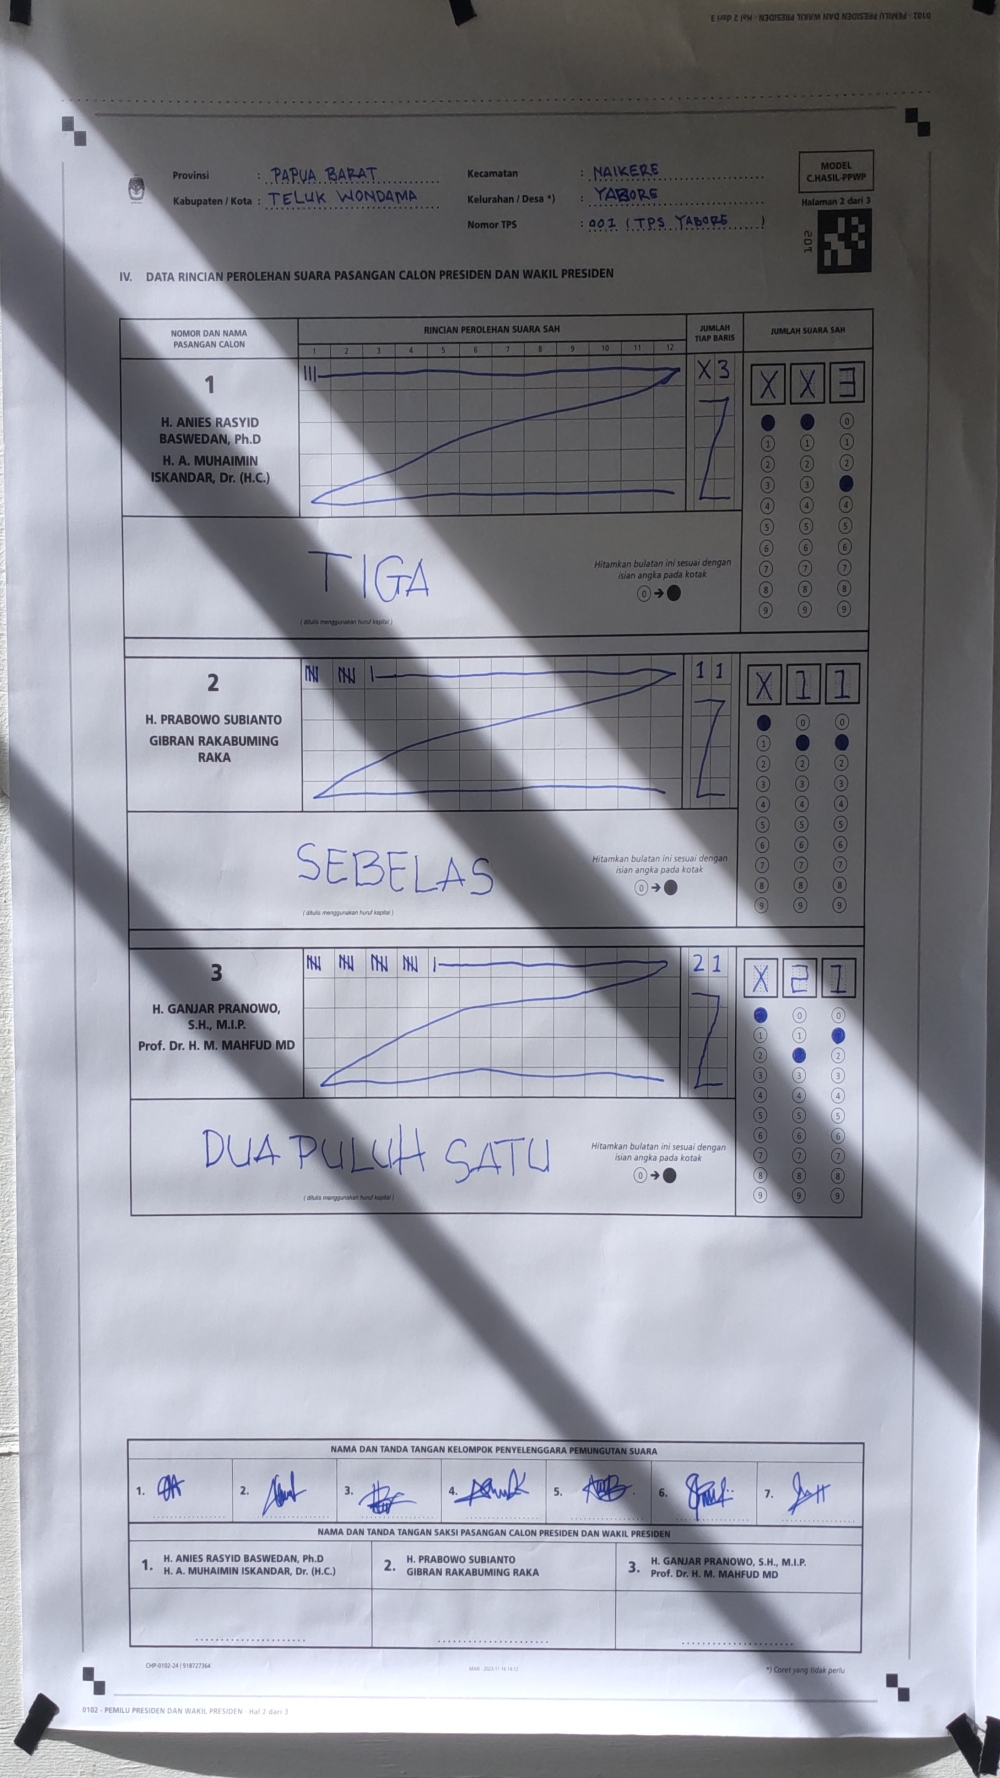 0102 - PEMILU PRESIDEN DAN WAKIL PRESIDEN - Hal 2 dari 3
Provinsi : PAPUA BARAT
Kabupaten / Kota : TELUK WONDAMA
Kecamatan : NAIKERE
Kelurahan / Desa *) : YABORE
Nomor TPS : 001 (TPS YABORE)
MODEL
C.HASIL-PPWP
Halaman 2 dari 3
102
IV. DATA RINCIAN PEROLEHAN SUARA PASANGAN CALON PRESIDEN DAN WAKIL PRESIDEN
NOMOR DAN NAMA
PASANGAN CALON
RINCIAN PEROLEHAN SUARA SAH
1 2 3 4 5 6 7 8 9 10 11 12
JUMLAH
TIAP BARIS
JUMLAH SUARA SAH
1
H. ANIES RASYID
BASWEDAN, Ph.D
H. A. MUHAIMIN
ISKANDAR, Dr. (H.C.)
X3
X X 3
0
1 1 1
2 2 2
3 3
4 4 4
5 5 5
6 6 6
7 7 7
8 8 8
9 9 9
TIGA
( ditulis menggunakan huruf kapital )
Hitamkan bulatan ini sesuai dengan
isian angka pada kotak
0
2
H. PRABOWO SUBIANTO
GIBRAN RAKABUMING
RAKA
11
X 1 1
0 0
1
2 2 2
3 3 3
4 4 4
5 5 5
6 6 6
7 7 7
8 8 8
9 9 9
SEBELAS
( ditulis menggunakan huruf kapital )
Hitamkan bulatan ini sesuai dengan
isian angka pada kotak
0
3
H. GANJAR PRANOWO,
S.H., M.I.P.
Prof. Dr. H. M. MAHFUD MD
21
X 2 1
0 0
1 1
2 2
3 3 3
4 4 4
5 5 5
6 6 6
7 7 7
8 8 8
9 9 9
DUA PULUH SATU
( ditulis menggunakan huruf kapital )
Hitamkan bulatan ini sesuai dengan
isian angka pada kotak
0
NAMA DAN TANDA TANGAN KELOMPOK PENYELENGGARA PEMUNGUTAN SUARA
1. 2. 3. 4. 5. 6. 7.
NAMA DAN TANDA TANGAN SAKSI PASANGAN CALON PRESIDEN DAN WAKIL PRESIDEN
1. H. ANIES RASYID BASWEDAN, Ph.D
H. A. MUHAIMIN ISKANDAR, Dr. (H.C.)
2. H. PRABOWO SUBIANTO
GIBRAN RAKABUMING RAKA
3. H. GANJAR PRANOWO, S.H., M.I.P.
Prof. Dr. H. M. MAHFUD MD
CHP-0102-24 | 918727364
*) Coret yang tidak perlu
0102 - PEMILU PRESIDEN DAN WAKIL PRESIDEN - Hal 2 dari 3